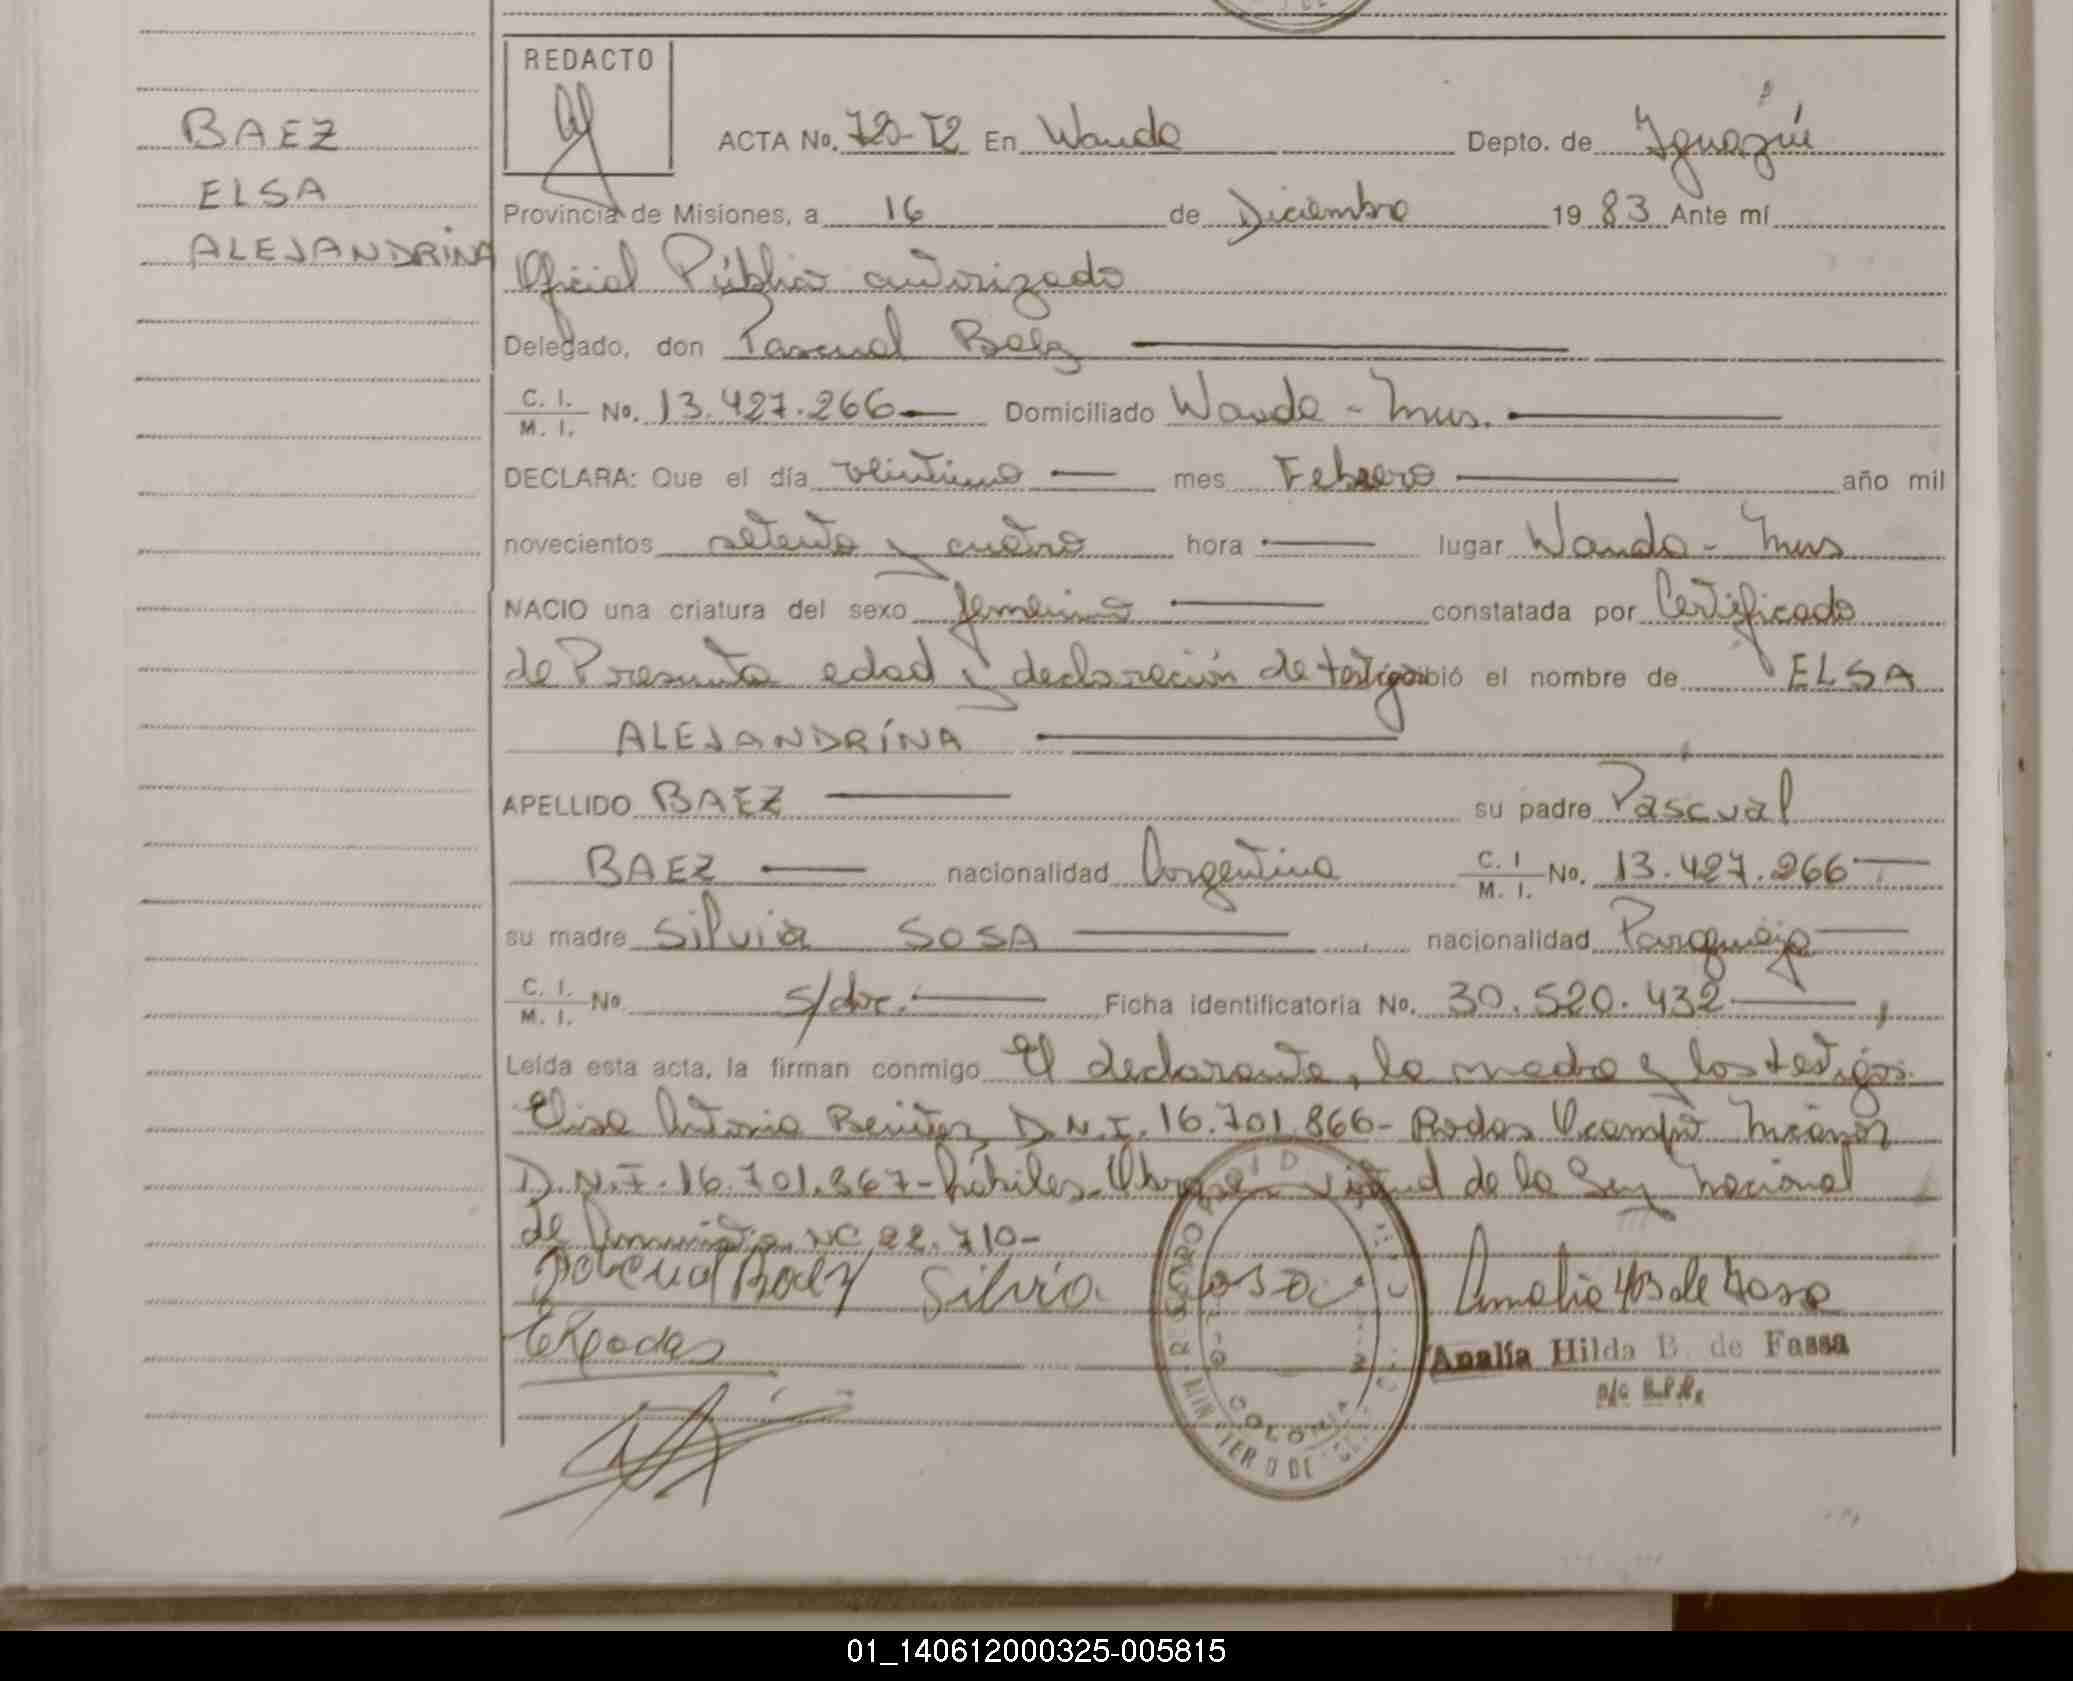 REDACTO
BAEZ
ELSA
ALEJANDRINA
ACTA No. 720-T2 En Wanda Depto. de Iguazú
Provincia de Misiones, a 16 de Diciembre 1983 Ante mí
Oficial Público autorizado
Delegado, don Pascual Baez
C. I. M. I. No. 13.427.266 Domiciliado Wanda - Mnes.
DECLARA: Que el día veintiuno mes Febrero año mil
novecientos setenta y cuatro hora lugar Wanda - Mnes
NACIO una criatura del sexo femenino constatada por Certificado
de Presunta edad y declaración de testigos ibió el nombre de ELSA
ALEJANDRÍNA
APELLIDO BAEZ su padre Pascual
BAEZ nacionalidad Argentina C. I M. I. No. 13.427.266
su madre Silvia SOSA nacionalidad Paraguaya
C. I. M. I. No s/doc. Ficha identificatoria No. 30.520.432
Leída esta acta, la firman conmigo El declarante, la madre y los testigos
Elisa Antonia Benitez D.N.I. 16.701.866- Rodas Ocampo Nicanor
D.N.I. 16.701.867- hábiles- en virtud de la Ley Nacional
de Amnistia Nº 22.710-
Pascual Baez Silvia Sosa
ERodas
Analía Hilda B. de Fassa
COLONIA
01_140612000325-005815